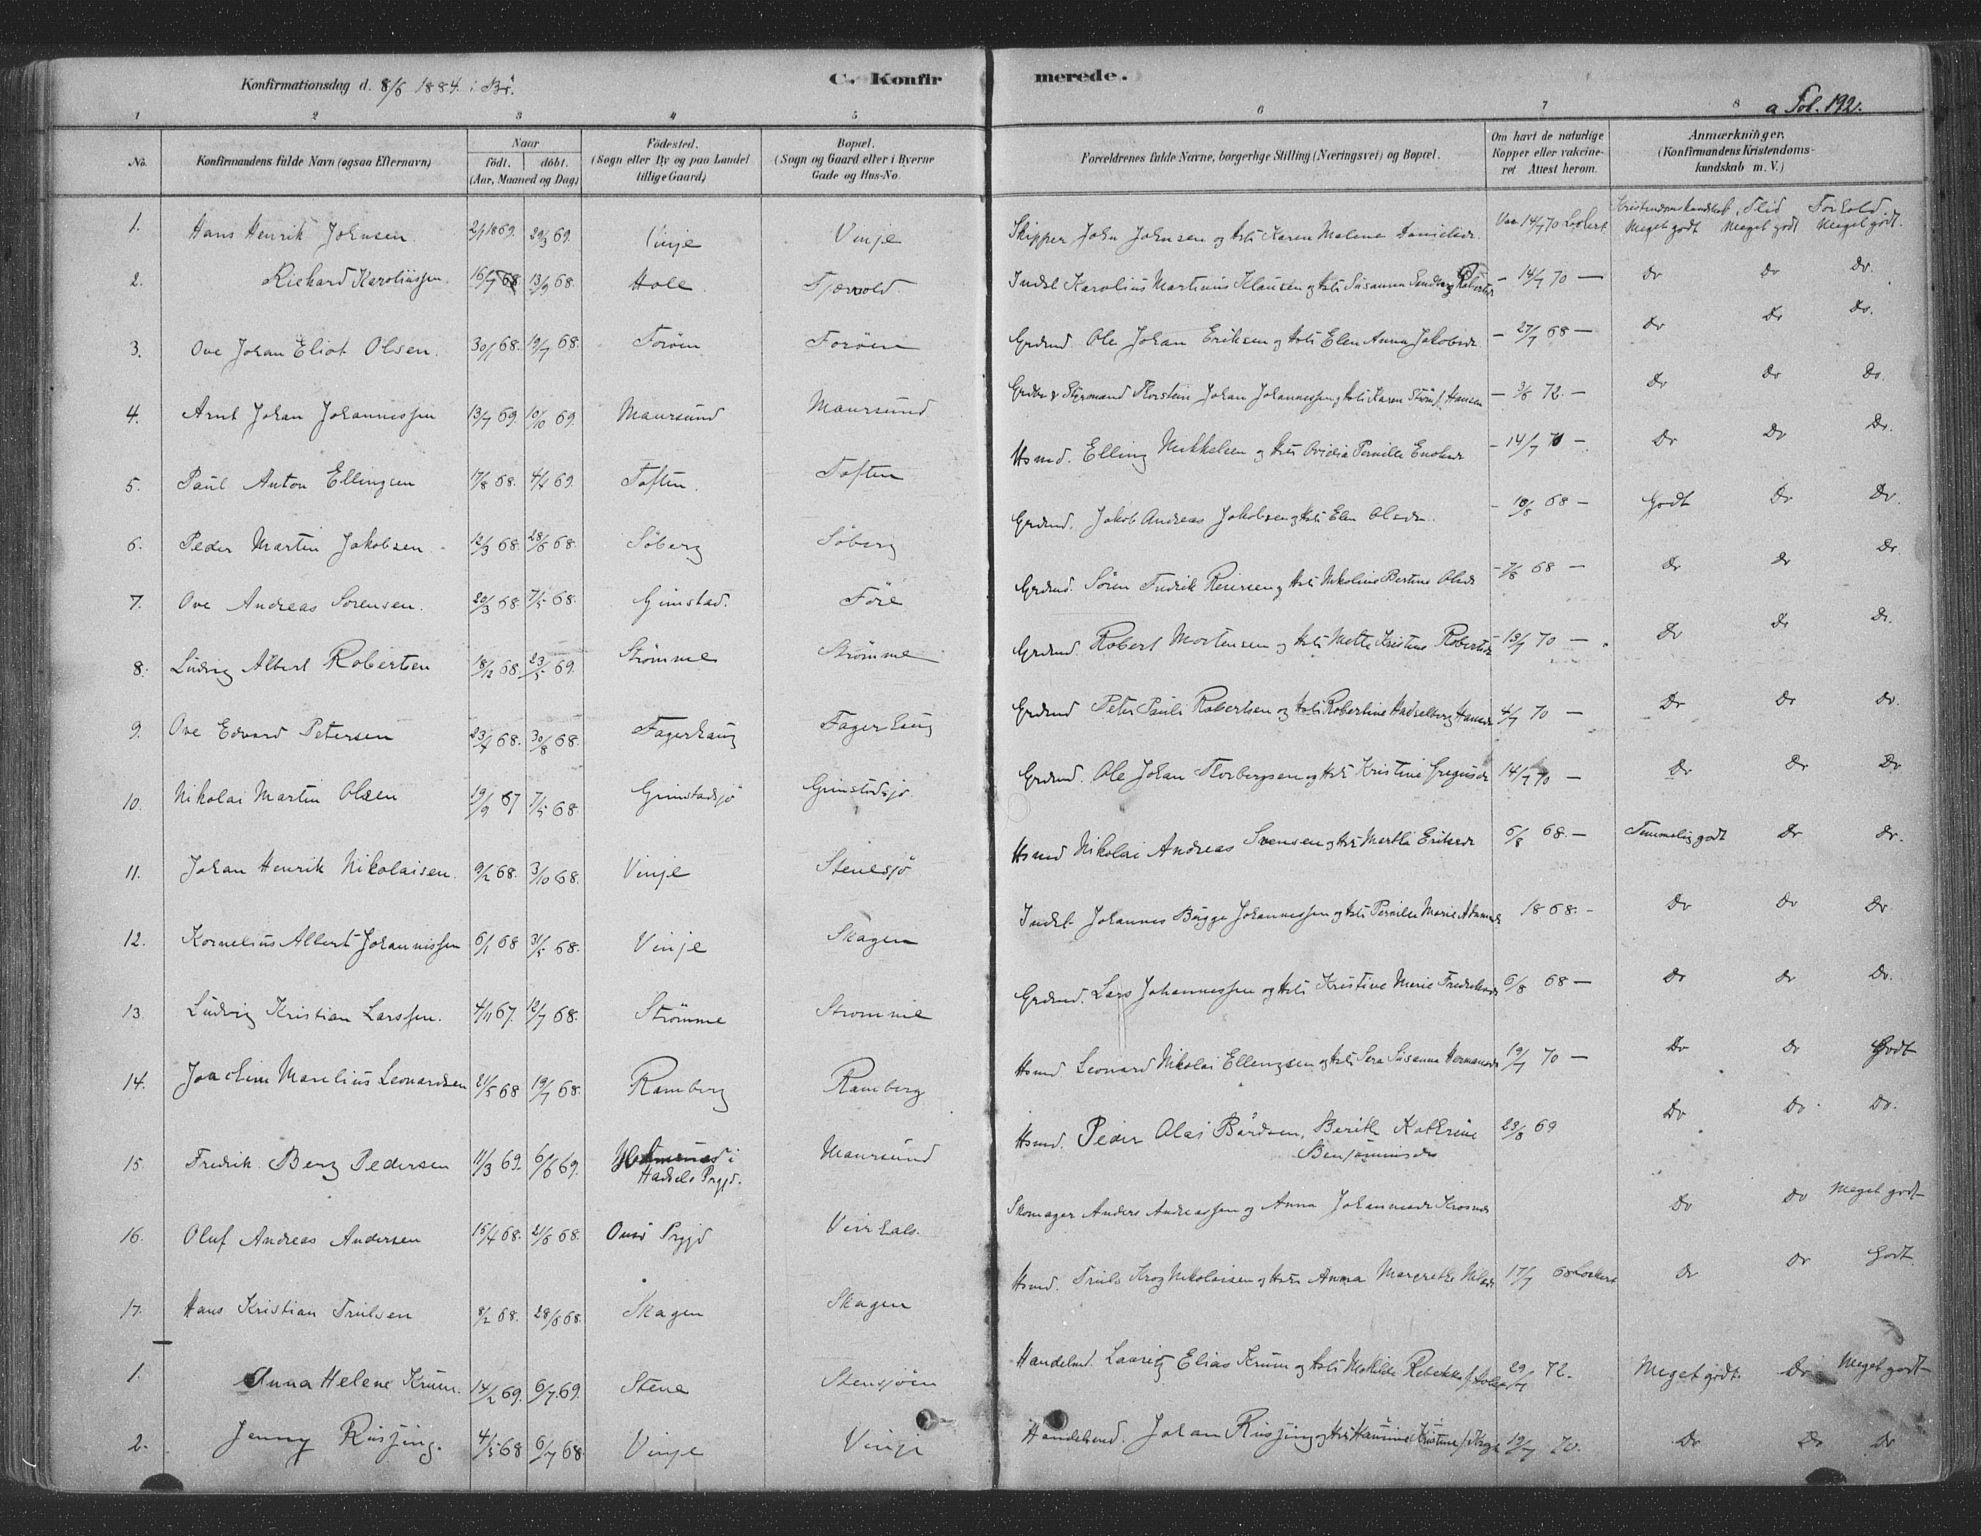 Konfirmationsdag d. 8/6 1884. i Bö.
C. Konfirmerede.
a Fol. 192.
1 2 3 4 5 6 7 8
No. Konfirmandens fulde Navn (ogsaa Efternavn) Naar født. døbt. (Aar, Maaned og Dag) Fødested. (Sogn eller By og paa Landet tillige Gaard) Bopæl. (Sogn og Gaard eller i Byerne Gade og Hus-No. Forældrenes fulde Navne, borgerlige Stilling (Næringsvei) og Bopæl. Om havt de naturlige Kopper eller vakcineret Attest herom. Anmærkninger. (Konfirmandens Kristendomskundskab m. V.)
Kristendomskundskab Flid Forhold
1. Hans Henrik Johnsen. 2/1 1869. 29/3 69. Vinje Vinje Skipper John Johnsen og Hst Karen Malene Danielsdr. Vac 14/7 70 Lockert Meget godt Meget godt Meget godt.
2. Richard Karoliussen. 16/7 68 13/9 68. Hole Fjærvold. Indst Karolius Martinius Klausen og Hst Susanna - 14/7 70 - Do Do Do.
3. Ove Johan Eliot Olsen. 30/1 68. 19/7 68. Forøen Forøen Grdmd. Ole Johan Eriksen og Hst Elen Anna Jakobsdr. - 27/7 68 - Do Do Do.
4. Arnt Johan Johannessen 13/7 69. 10/10 69. Maursund Maursund Thorstein Johan Johannessen og Hst Karen Strøm f. Hansen - 3/6 72. - Do Do Do.
5. Paul Anton Ellingsen 17/8 68. 4/4 69. Toften. Toften Hsmd. Elling Mikkelsen og Hst Ovidia Pernille - 14/7 70 - Do Do Do.
6. Peder Martin Jakobsen. 12/3 68. 28/6 68. Söberg Söberg Grdmd. Jakob Andreas Jakobsen og Hst Elen Olsdr. - 10/8 68 - Godt Do Do.
7. Ove Andreas Sørensen. 20/3 68. 7/5 68. Grimstad. Före Grdmd. Sören Fredrik Reiersen og Hst Nikoline Bertine Olsdr - 7/8 68 - Do Do Do.
8. Ludvig Albert Robertsen 18/12 68. 23/5 69. Strömme Strömme Grdmd. Robert Mortensen og Hst Mette Kristine Robertsdr - 13/7 70 - Do Do Do.
9. Ove Edvard Petersen 23/4 68. 30/8 68. Fagerhaug Fagerhaug Grdmd Peter Pauli Robertsen og Hst Robertine Hadselberg Hansdr 4/7 70 - Do Do Do.
10. Nikolai Martin Olsen 19/9 67 7/5 68. Grimstadsjö Grimstadsjö Grdmd. Ole Johan Thorbergsen og Hst Kristine Gregusdr 14/7 70 - Do Do Do
11. Johan Henrik Nikolaisen. 9/2 68. 3/10 68. Vinje Stenesjö Hsmd Nikolai Andreas Svensen og Hst Martha Eriksdr 6/8 68. - Temmelig godt Do Do.
12. Kornelius Albert Johannissen 6/1 68 31/5 68. Vinje Skagen Indst. Johannes Bugge Johannessen og Hst Pernille Marie 18 68. - Do Do Do
13. Ludvig Kristian Larssen. 4/11 67. 12/7 68. Strömme Strömme Grdmd. Lars Johannessen og Hst Kristine Marie Fredriksdr 6/8 68 - Do Do Do.
14. Joachim Marelius Leonardsen 21/5 68 19/7 68. Ramberg Ramberg Hsmd Leonard Nikolai Ellingsen og Hst Sara Susanna Hermansdr 19/7 70 - Do Do Godt
15. Fredrik Berg Pedersen 11/3 69. 6/6 69. i Hadsels Prgjd. Maursund Hsmd. Peder Olai Bårdsen, Berith Kathrine Benjaminsdr 23/8 69 Do Do. Do.
16. Oluf Andreas Andersen 15/4 68. 21/6 68. Prgjd Veirhals. Skomager Anders Andreassen og Anna Johannesdr Do Do Meget godt
17. Hans Kristian Trulsen 8/2 68. 28/6 68. Skagen Skagen Hsmd. Truls Krog Nikolaisen og Hst Anna Margrethe Nilsdr 17/7 68 Lockert Do Do Godt.
1. Anna Helene Krum. 14/2 69. 6/7 69. Stene Stensjöen Handelsmd. Lauritz Elias Krum og Hst Mathilde Rebekka 29/7 72. Meget godt. Do Meget godt
2. Jenny Rusjing. 4/5 68 6/7 68 Vinje Vinje Handelsmd. Johan Rusjing og Hst Hanine Kristine f. Krog 19/7 70. Do Do Do